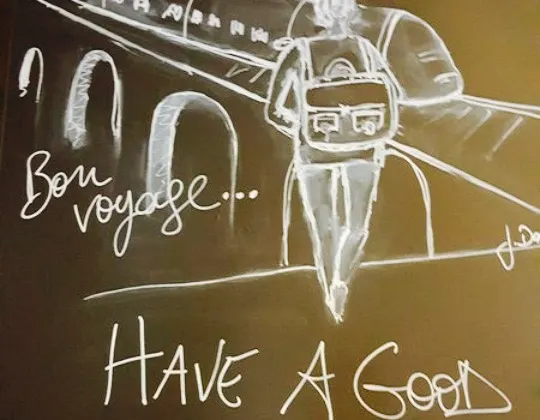 Bon
voyage...
HAVE A GOOD